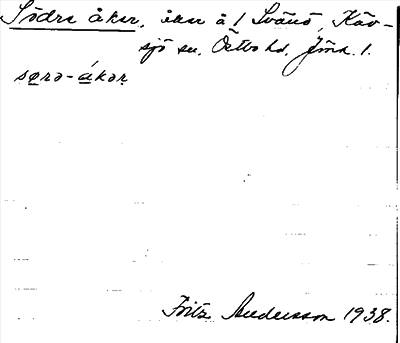 Södra åker, åker å 1 Svänö, Käv-
sjö sn. Östbo hd. Jönk. l.
sørə-ákər
Fritz Andersson 1938.